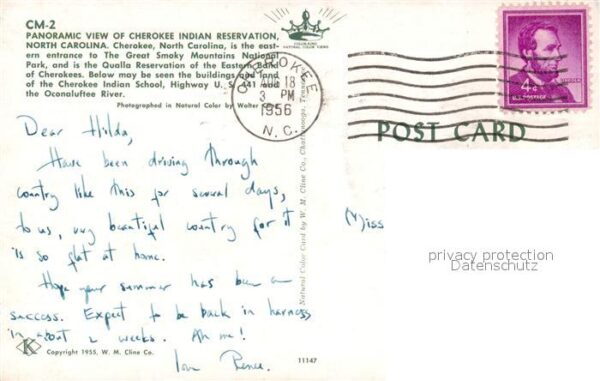 CM-2
PANORAMIC VIEW OF CHEROKEE INDIAN RESERVATION,
NORTH CAROLINA. Cherokee, North Carolina, is the east-
ern entrance to The Great Smoky Mountains National
Park, and is the Qualla Reservation of the Eastern Band
of Cherokees. Below may be seen the buildings and land
of the Cherokee Indian School, Highway U. S. 441 and
the Oconaluftee River.
Photographed in Natural Color by Walter Cline
CHEROKEE
18
3 PM
1956
N.C.
4¢
U.S. POSTAGE
LINCOLN
POST CARD
Dear Hilda,
Have been driving through
country like this for several days,
to us, very beautiful country for it
is so flat at home.
Hope your summer has been a
success. Expect to be back in harness
in about 2 weeks. Ah me!
Love Renee.
Miss
privacy protection
Datenschutz
Natural Color Card by W. M. Cline Co., Chattanooga, Tennessee
K
Copyright 1955, W. M. Cline Co.
11147